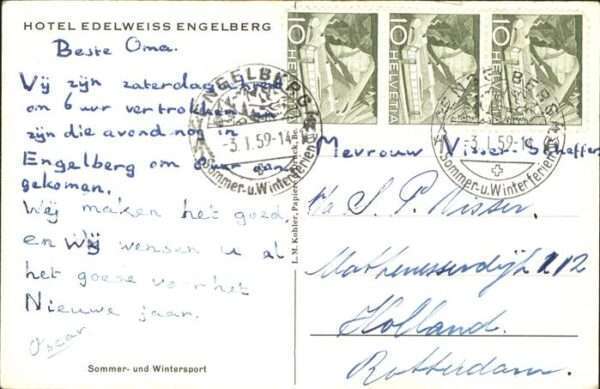 HOTEL EDELWEISS ENGELBERG
Beste Oma.
Vij zijn zaterdagavond
om 6 uur vertrokken en
zijn die avond nog in
Engelberg om uur aan
gekomen.
Wij maken het goed
en Wij wensen u al
het goese voor het
Nieuwe jaar.
Oscar
Sommer- und Wintersport
L. M. Kohler, Papier
10 HELVETIA
10 HELVETIA
10 HELVETIA
ENGELBERG
-3.1.59-14
Sommer-u.Winterferien
-3.1.59-14
Sommer-u.Winterferien
Mevrouw Visser-
S. P. Visser.
Mathenesserdijk 112
Holland.
Rotterdam.